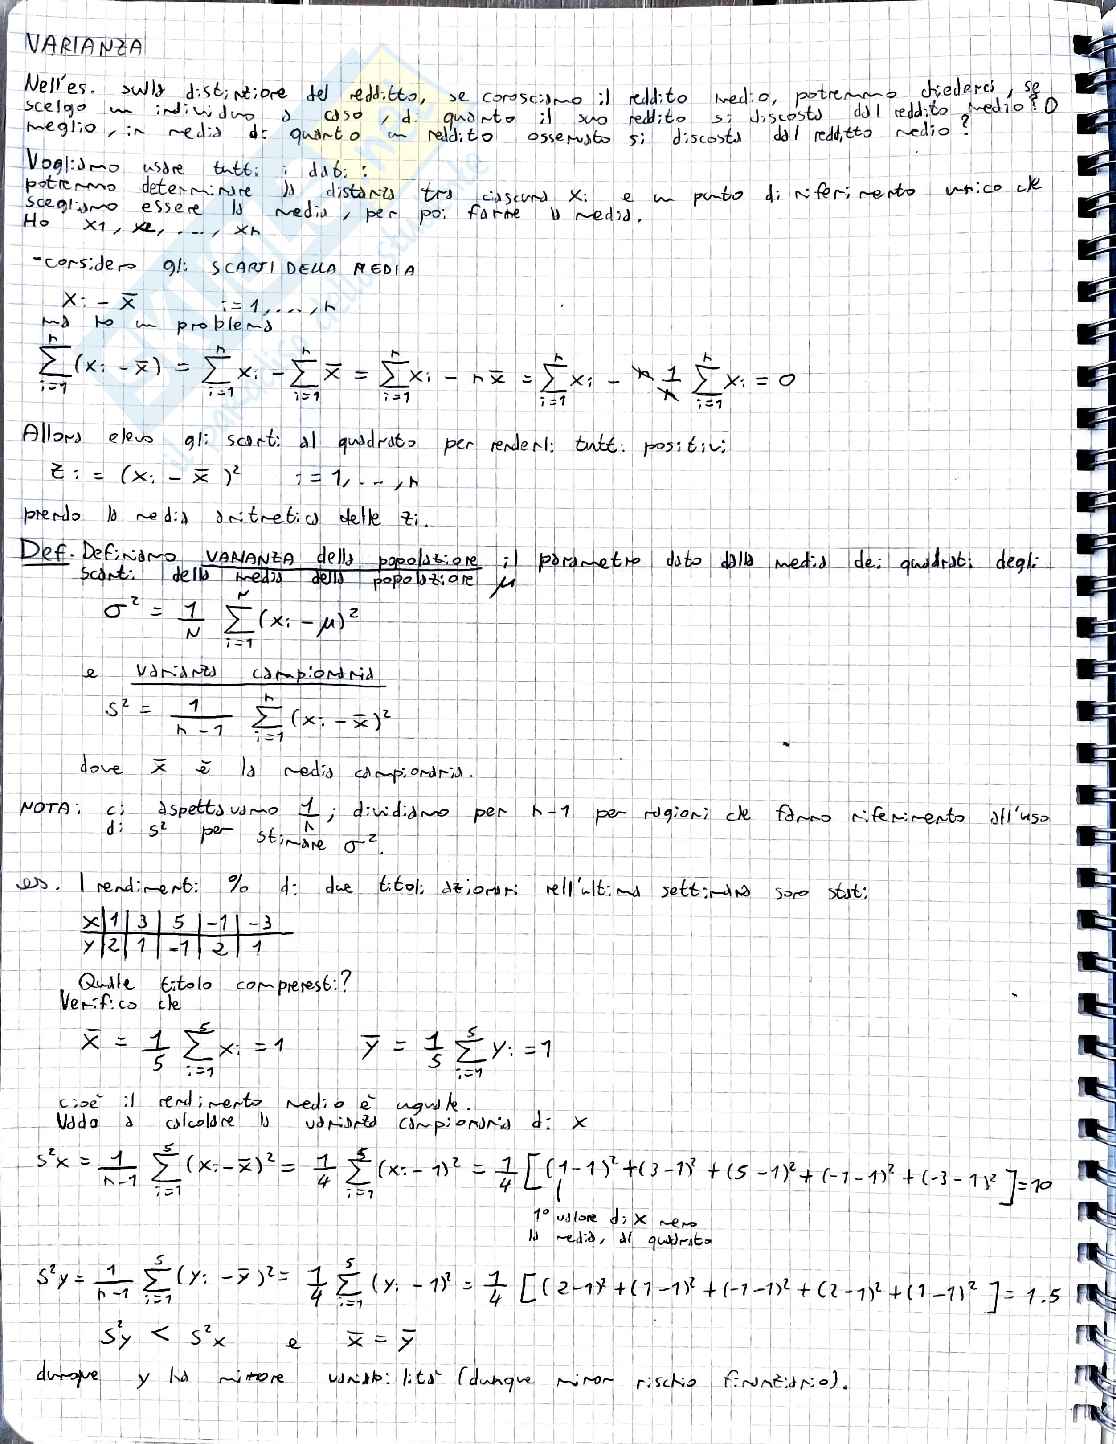 VARIANZA
Nell'es. sulla distinzione del redditto, se conosciamo il reddito medio, potremmo chiederci, se
scelgo un individuo a caso, di quanto il suo reddito si discosta dal reddito medio? O
meglio, in media di quanto un reddito osservato si discosta dal redditto medio?
Vogliamo usare tutti i dati:
potremmo determinare la distanza tra ciascuna xi e un punto di riferimento unico che
scegliamo essere la media, per poi farne la media.
Ho x1, x2, ..., xn
-considero gli SCARTI DELLA MEDIA
xi - x̄ i=1,...,n
ma ho un problema
∑_{i=1}^{n} (xi - x̄) = ∑_{i=1}^{n} xi - ∑_{i=1}^{n} x̄ = ∑_{i=1}^{n} xi - n x̄ = ∑_{i=1}^{n} xi - n 1/n ∑_{i=1}^{n} xi = 0
Allora elevo gli scarti al quadrato per renderli tutti positivi
zi = (xi - x̄)² i=1,...,n
prendo la media aritmetica delle zi.
Def. Definiamo VARIANZA della popolazione il parametro dato dalla media dei quadrati degli
scarti della media della popolazione μ
σ² = 1/N ∑_{i=1}^{N} (xi - μ)²
e varianza campionaria
s² = 1/(n-1) ∑_{i=1}^{n} (xi - x̄)²
dove x̄ è la media campionaria.
NOTA: ci aspettavamo 1/n; dividiamo per n-1 per ragioni che fanno riferimento all'uso
di s² per stimare σ².
es. I rendimenti % di due titoli azionari nell'ultima settimana sono stati
x | 1 | 3 | 5 | -1 | -3
y | 2 | 1 | -1 | 2 | 1
Quale titolo compreresti?
Verifico che
x̄ = 1/5 ∑_{i=1}^{5} xi = 1 ȳ = 1/5 ∑_{i=1}^{5} yi = 1
cioè il rendimento medio è uguale.
Vado a calcolare la varianza campionaria di x
s²x = 1/(n-1) ∑_{i=1}^{5} (xi - x̄)² = 1/4 ∑_{i=1}^{5} (xi - 1)² = 1/4 [(1-1)² + (3-1)² + (5-1)² + (-1-1)² + (-3-1)²] = 10
1° valore di x meno
la media, al quadrato
s²y = 1/(n-1) ∑_{i=1}^{5} (yi - ȳ)² = 1/4 ∑_{i=1}^{5} (yi - 1)² = 1/4 [(2-1)² + (1-1)² + (-1-1)² + (2-1)² + (1-1)²] = 1.5
s²y < s²x e x̄ = ȳ
dunque y ha minore variabilità (dunque minor rischio finanziario).